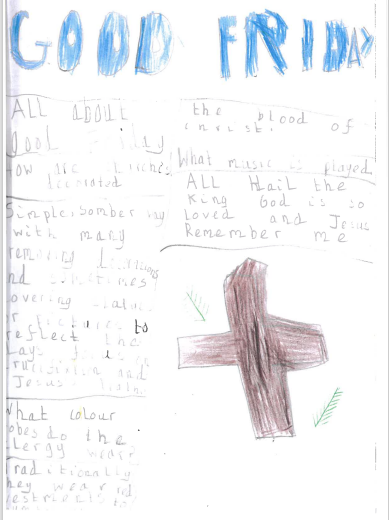 GOOD FRIDAY
ALL about
Good Friday
How are churches
decorated
Simple, somber way
with many
removing
and sometimes
covering statues
or pictures to
reflect the
days focus on
crucifixion and
Jesus
What colour
robes do the
clergy wear
Traditically
they wear red
vestments to
the blood of
christ.
What music is played
ALL Hail the
King God is so
Loved and Jesus
Remember me